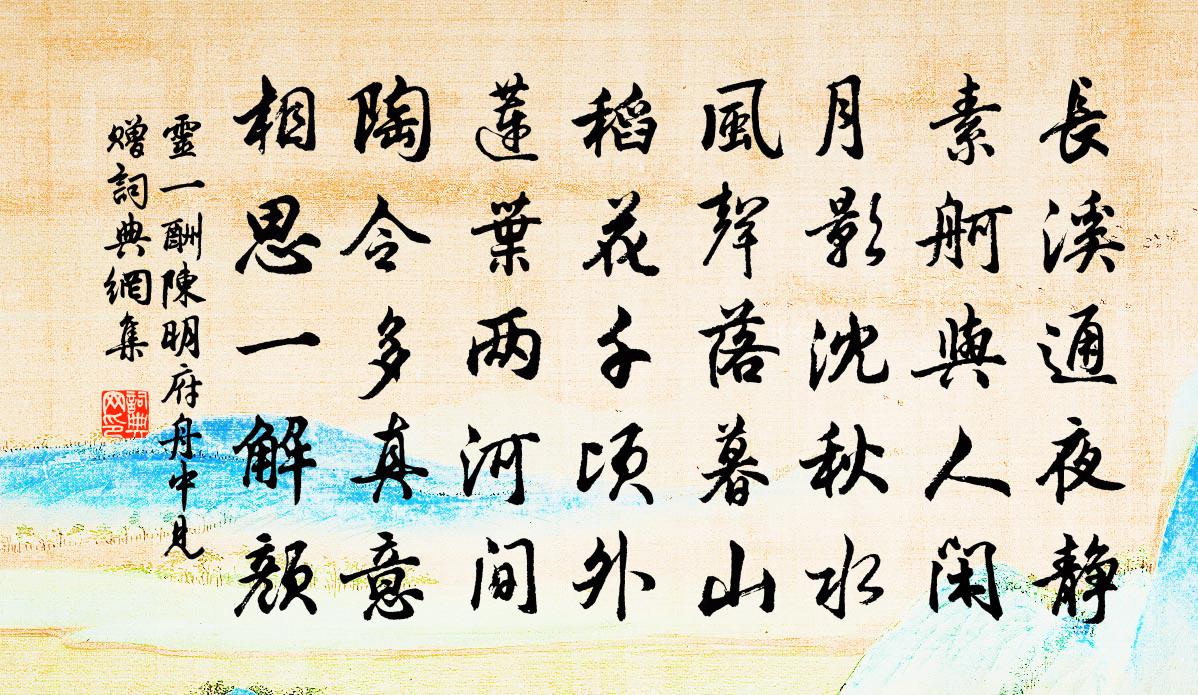 長溪通夜静
素舸與人闲
月影沈秋水
風聲落暮山
稻花千顷外
蓮葉两河间
陶令多真意
相思一解顏
靈一酬陳明府舟中見
赠詞典網集
詞典
网印